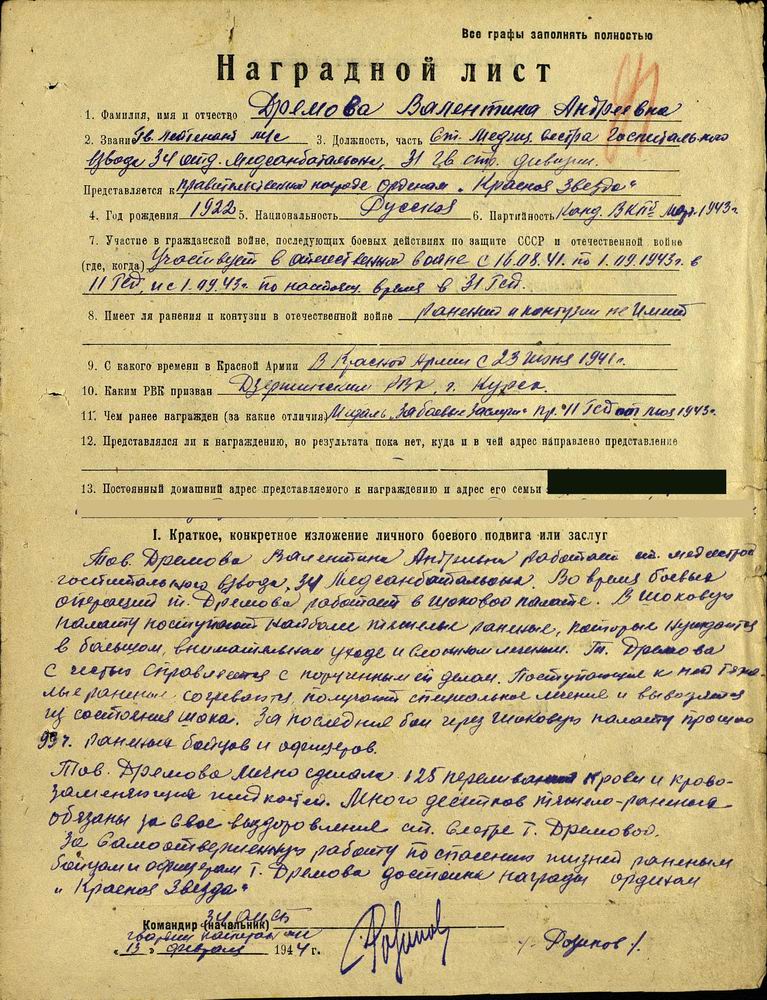 Все графы заполнять полностью
Наградной лист
1. Фамилия, имя и отчество Дремова Валентина Андреевна
2. Звание Гв. лейтенант м/с 3. Должность, часть Ст. Медиц. сестра Госпитального
взвода 34 отд. медсанбатальона, 31 гв. стр. дивизии.
Представляется к правительственной награде орденом „Красная Звезда“
4. Год рождения 1922 5. Национальность Русская 6. Партийность Канд. ВКПб март 1943г.
7. Участие в гражданской войне, последующих боевых действиях по защите СССР и отечественной войне
(где, когда) Участвует в отечественной войне с 16.08.41. по 1.09.1943г. в
11 Гсд, и с 1.09.43г. по настоящ. время в 31 Гсд.
8. Имеет ля ранения и контузии в отечественной войне ранений и контузии не имеит
9. С какого времени в Красной Армии В Красной Армии с 23 июня 1941г.
10. Каким РВК призван Дзержинским РВК, г. Курск.
11. Чем ранее награжден (за какие отличия) Медаль „За боевые заслуги“ пр. 11 Гсд от 1943г.
12. Представлялся ли к награждению, но результата пока нет, куда и в чей адрес направлено представление
13. Постоянный домашний адрес представляемого к награждению и адрес его семьи
I. Краткое, конкретное изложение личного боевого подвига или заслуг
Тов. Дремова Валентина Андревна работает ст. медсестрой
госпитального взвода 34 Медсанбатальона. Во время боевых
операций т. Дремова работает в шоковой палате. В шоковую
палату поступают наиболе тяжелые раненые, которые нуждаются
в большом, внимательном уходе и сложном лечении. Т. Дремова
с честью справляется с порученным ей делом. Поступающие к ней тяже-
лые раненые согреваются, получают специальное лечение и выводятся
из состояния шока. За последние бои через шоковую палату прошло
99 ч. раненых бойцов и офицеров.
Тов. Дремова лично сделала 125 переливаний крови и крово-
заменяющих жидкостей. Много десятков тяжело-раненых
обязаны за свое выздоровление ст. сестре т. Дремовой.
За самоотверженную работу по спасению жизней раненым
бойцам и офицерам т. Дремова достойна награды орденом
„Красная Звезда“
34 ОМСБ
Командир (начальник)
гвардии капитан м/с
„13“ февраля 1944 г. /Розинов/.